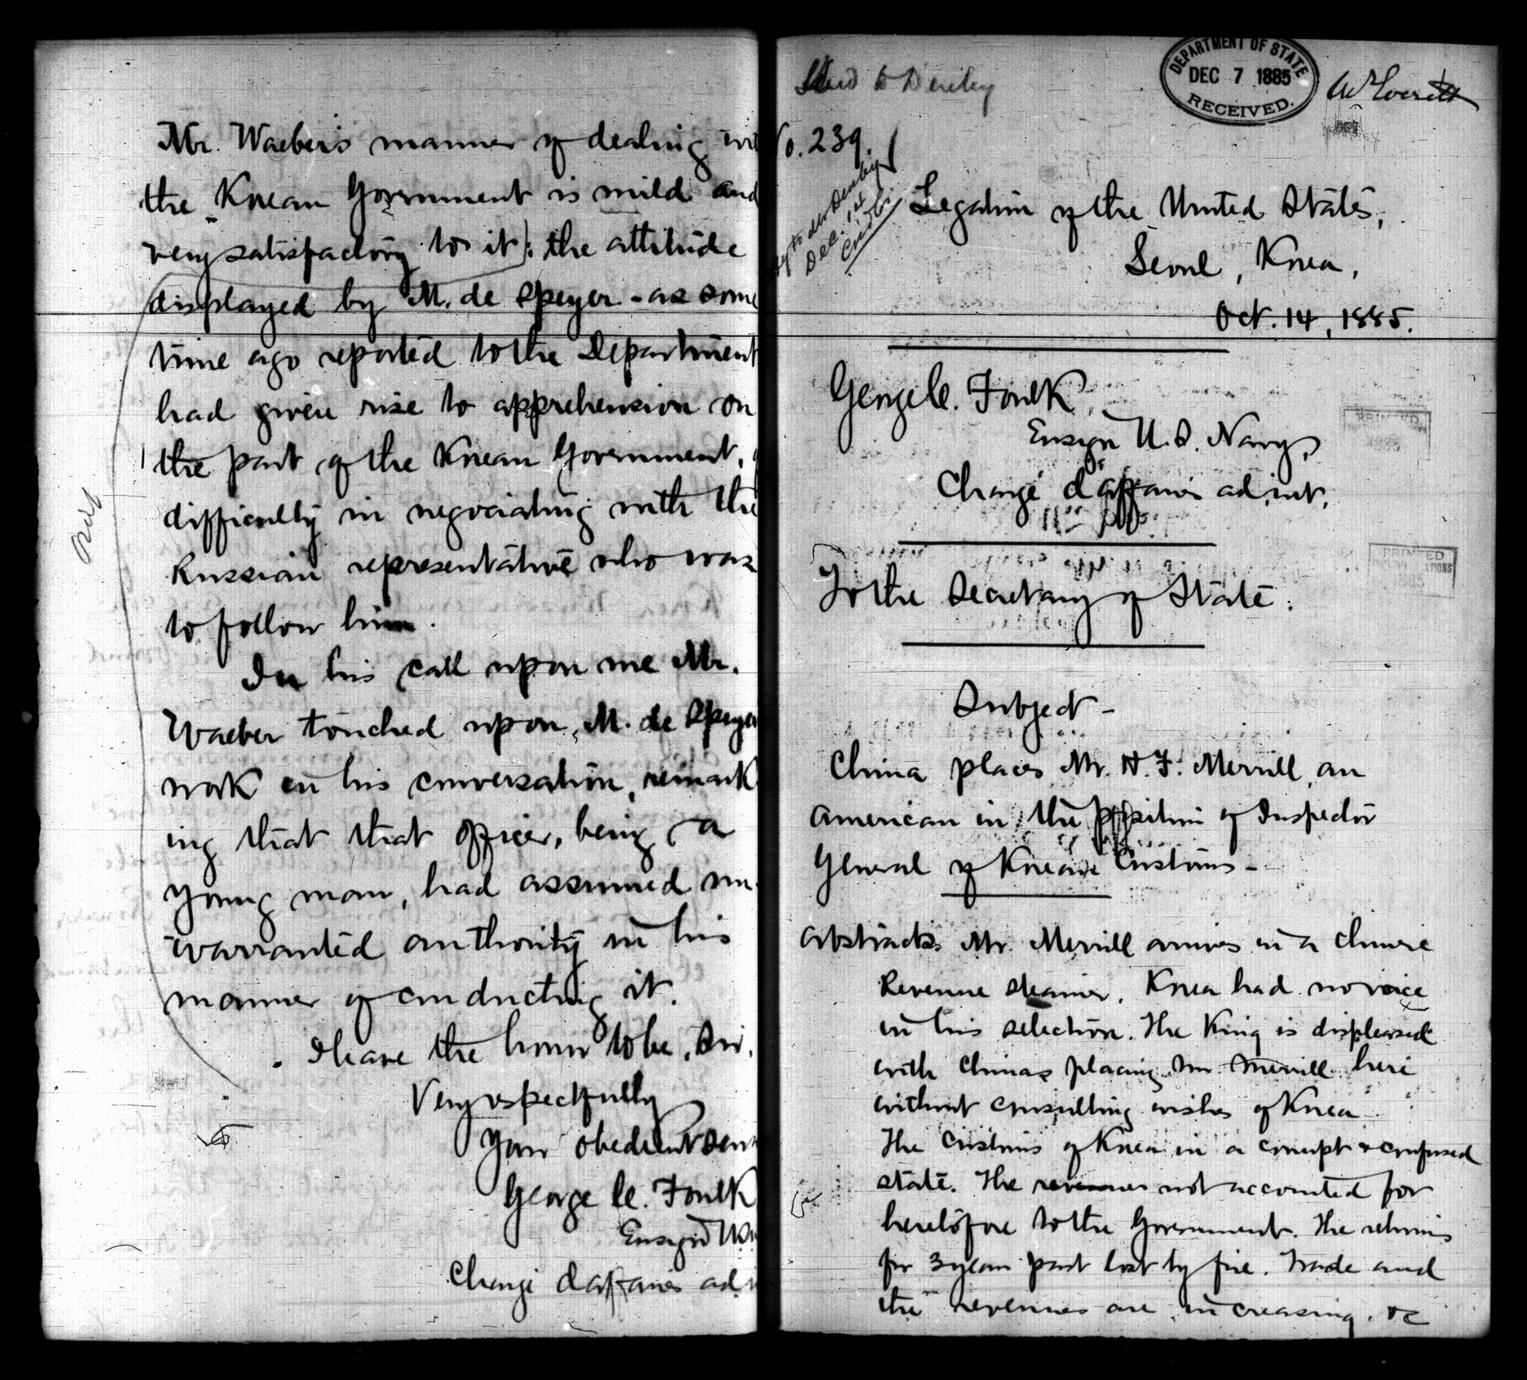 Mr. Waeber's manner of dealing wit
the Korean Government is mild and
very satisfactory to it]: the attitude
displayed by M. de Speyer - as some
time ago reported to the Department
had given rise to apprehension on
the part of the Korean Government, of
difficulty in negociating with the
Russian representative who was
to follow him.
In his call upon me Mr.
Waeber touched upon M. de Speyer
work in his conversation, remark
ing that that officer, being a
young man, had assumed un-
warranted authority in his
manner of conducting it.
I have the honor to be, Sir,
Very respectfully
Your obedient Serv
George C. Foulk
Ensign U.S.
Chargé d'affaires ad i
to Denby
DEPARTMENT OF STATE
DEC 7 1885
RECEIVED.
No. 239.
to Denby
Dec. 14
Legation of the United States,
Seoul, Korea,
Oct. 14, 1885.
George C. Foulk
Ensign U.S. Navy,
Chargé d'affaires ad. int.
To the Secretary of State:
Subject -
China places Mr. H. F. Merrill, an
American in the position of Inspector
General of Korean Customs -
Abstract. Mr. Merrill arrives in a Chinese
Revenue steamer. Korea had no voice
in his selection. The King is displeased
with China's placing Mr Merrill here
without consulting wishes of Korea
The Customs of Korea in a corrupt & confused
state. The revenues not accounted for
heretofore to the Government. The returns
for 3 years past lost by fire. Trade and
the revenues are increasing. &c